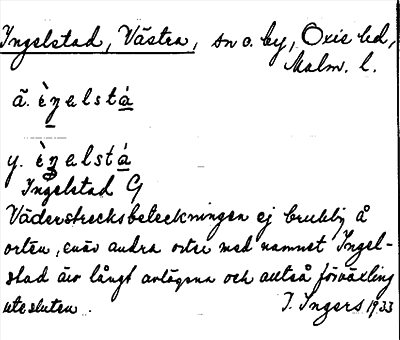 Ingelstad, Västra, sn o. by, Oxie hd,
Malm. l.
ä. èŋəlstá
y. èŋəlstá
Ingelstad G
Väderstrecksbeteckningen ej bruklig å
orten, enär andra orter med namnet Ingel-
stad äro långt avlägsna och alltså förväxling
utesluten.
I. Ingers 1933